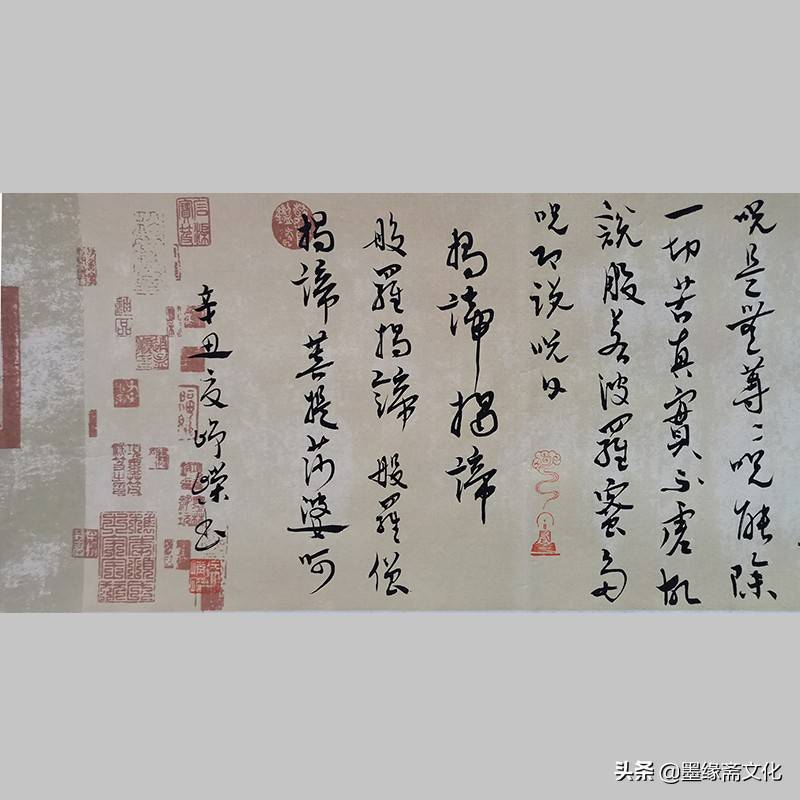 呪是無等〻呪能除
一切苦真實不虛故
說般若波羅蜜多
呪即说呪曰
揭諦揭諦
般羅揭諦般羅僧
揭諦菩提莎婆呵
辛丑夏崢嶸書
头条 @墨缘斋文化